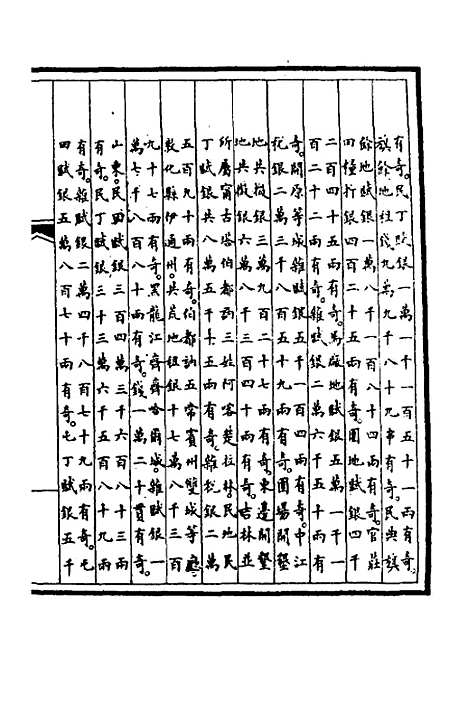 有奇民丁賦銀一萬一千一百五十一兩有奇
旗餘地租錢九萬九千八十九串有奇民典旗
餘地賦銀一萬八千一百八十四兩有奇官莊
四種行銀四百二十五兩有奇園地賦銀四千
二百四十五兩有奇葦廠地賦銀五萬一千一
百二十二兩有奇雜賦銀二萬六千五十兩有
奇開原等城雜賦銀一千一百四兩有奇中江
稅銀二萬三千八百五十九兩有奇圍場開墾
地共徵銀三萬九百二十七兩有奇東邊開墾
地共徵銀六萬八千三百四十兩有奇吉林並
所屬甯古塔伯都訥三姓阿客楚拉林民地民
丁賦銀共八萬五千十五兩有奇雜稅銀二萬
五百九十兩有奇伯都訥五常賓州雙城等廳
敦化縣伊通州共荒地租銀十七萬八千三百
九十七兩有奇黑龍江齊齊哈爾城雜賦銀一
萬七千八百八十兩有奇錢一萬二十貫有奇
山東民田賦銀三百四萬三千六百八十三兩
有奇民丁賦銀三十三萬六千五百八十九兩
有奇雜賦銀二萬四千八百七十九兩有奇屯
田賦銀五萬八百七十兩有奇屯丁賦銀五千